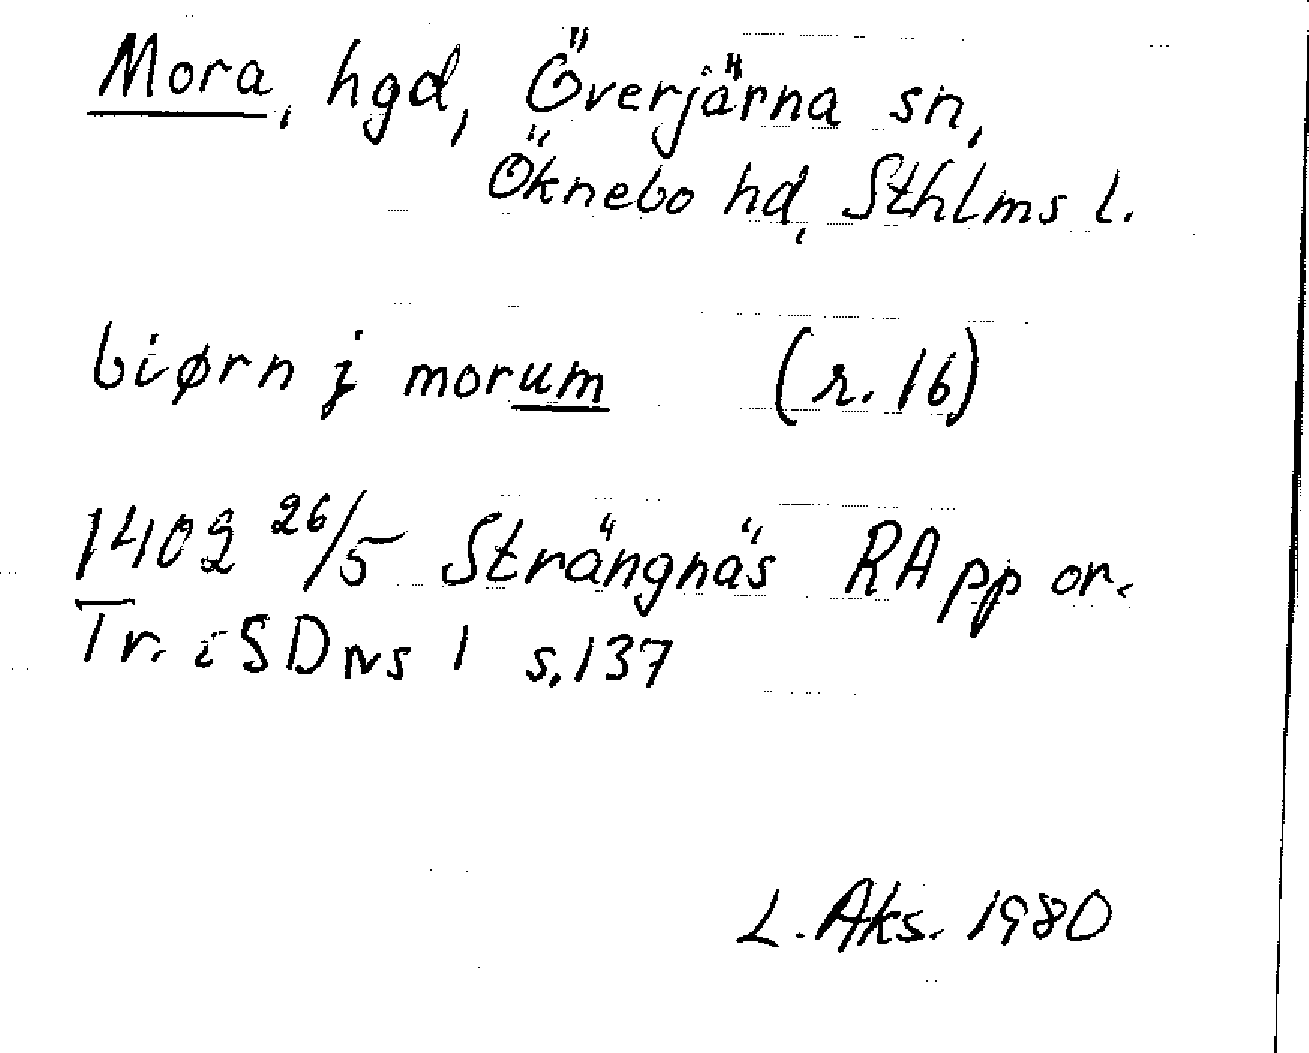 Mora, hgd, Överjärna sn,
Öknebo hd, Sthlms l.
biørn j morum (r. 16)
1402 26/5 Strängnäs RA pp or.
Tr. i SD NS 1 s. 137
L. Aks. 1980